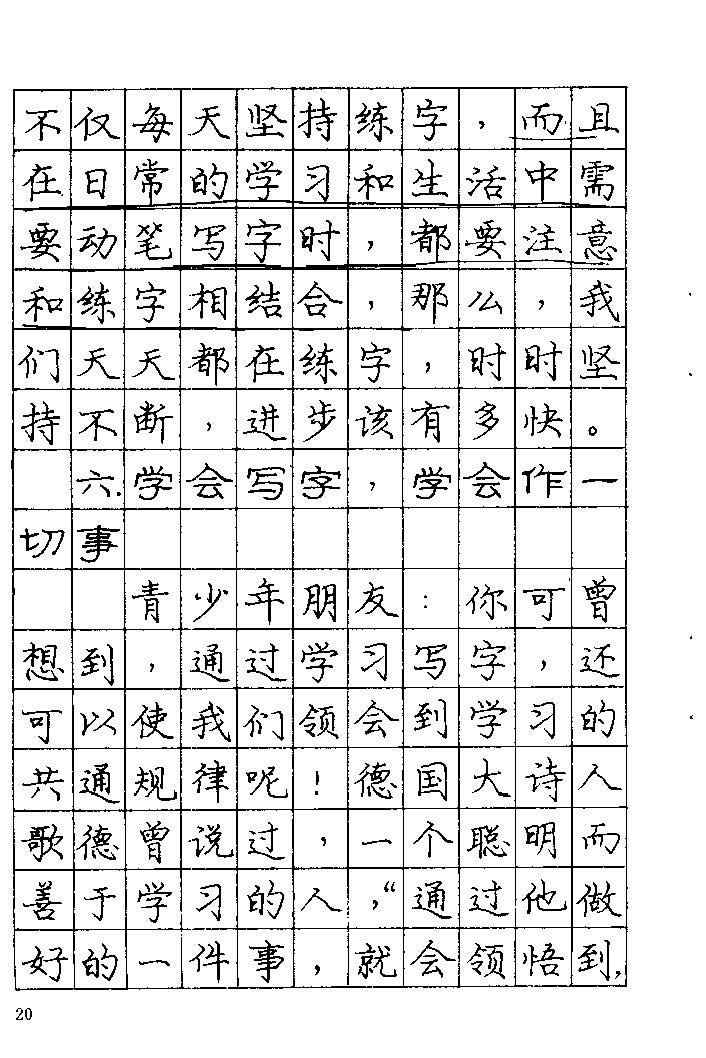 不仅每天坚持练字，而且
在日常的学习和生活中需
要动笔写字时，都要注意
和练字相结合，那么，我
们天天都在练字，时时坚
持不断，进步该有多快。
六.学会写字，学会作一
切事
青少年朋友：你可曾
想到，通过学习写字，还
可以使我们领会到学习的
共通规律呢！德国大诗人
歌德曾说过，一个聪明而
善于学习的人，“通过他做
好的一件事，就会领悟到，
20